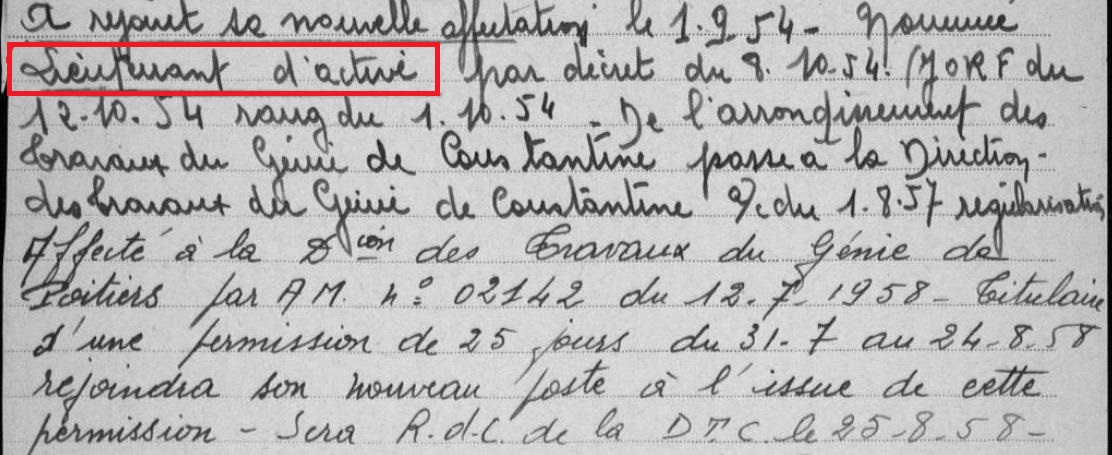 A rejoint sa nouvelle affectation le 1.9.54 - Nommé
Lieutenant d'active par décret du 8.10.54. (JORF du
12.10.54 rang du 1.10.54 - De l'arrondissement des
travaux du Génie de Constantine passe à la Direction -
des travaux du Génie de Constantine à/c du 1.8.57 régularisation
Affecté à la Dion des Travaux du Génie de
Poitiers par A.M. n° 02142 du 12.7.1958 - Titulaire
d'une permission de 25 jours du 31.7 au 24.8.58
rejoindra son nouveau poste à l'issue de cette
permission - Sera R.d.C. de la D.T.C. le 25-8-58 -